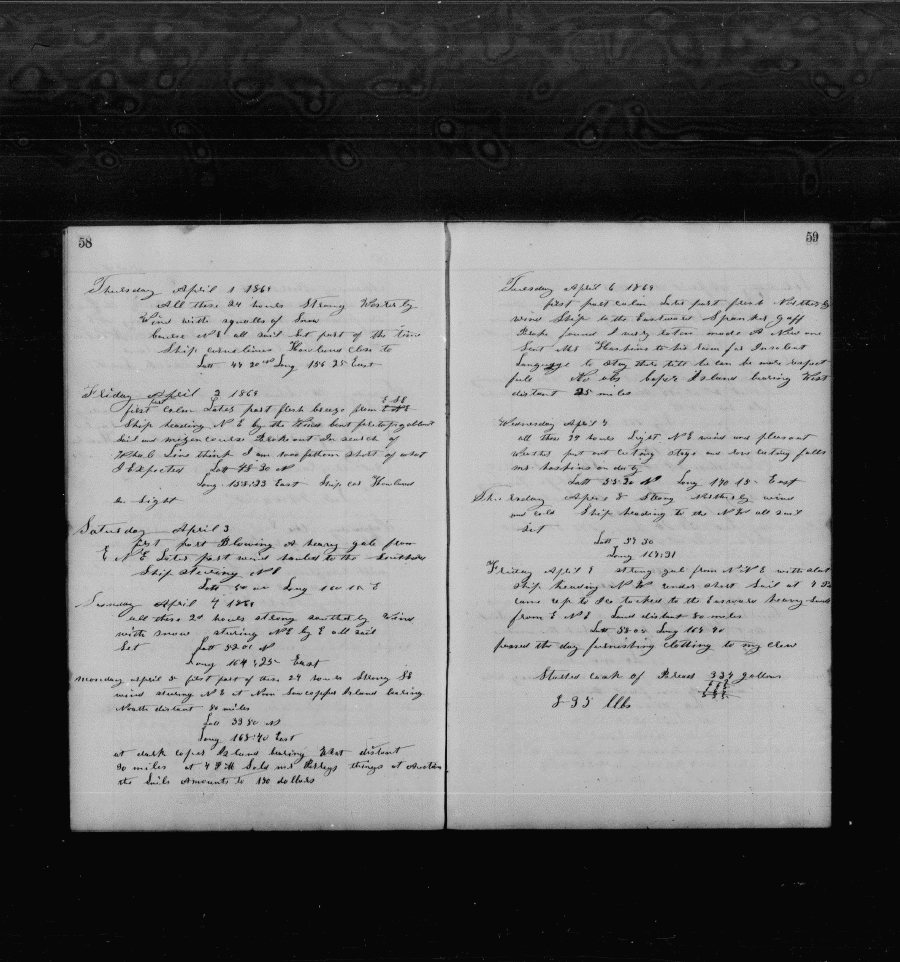 58
Thursday April 1 1869
All these 24 hours Strong Westerly
Wind with squalls of Snow
Course N E all sail Set part of the time
Ship cornelious Howland close to
Latt 49 20 N Long 156 25 East
Friday April 2 1869
first calm Later part flesh breeze from E SE
Ship heading N E by the Wind bent foretopgallant
Sail and mizen course Broke out In search of
Whale Line think I am 100 fathom short of what
I Expected Latt 48 30 N
Long 158:23 East Ship cor Howland
In Sight
Saturday April 3
first part Blowing A heavy gale from
E N E Later part wind hauled to the Southard
Ship steering N E
Latt 50 00 Long 160 15 E
Sunday April 4 1869
all these 24 hours strong southerly Wind
with snow stering N E by E all sail
Set Latt 52 01 N
Long 164:25 East
Monday april 5 first part of this 24 hours Strong SE
wind stering N E at Noon Island bearing
North distant 80 miles
Latt 53 50 N
Long 168:40 East
at dark coper Island bearing West distant
30 miles at 4 P M Sold mr things at Auction
the Sails Amounts to 130 dollars
59
Tuesday April 6 1869
first part calm Later part fresh Northerly
wind Ship to the Eastward Spanker gaff
Broke found I rotten made A New one
Sent Mr Haskins to his room for Insolent
Language to Stay there till he can be more respect
full No obs Coper Island bearing West
distant 25 miles
Wednesday April 7
all these 24 hours Light N E wind and pleasant
Weather put out cuting stage and rove cuting falls
mr haskins on duty
Latt 55:30 N Long 170 15 East
Thursday Aperl 8 Strong Northerly wind
and cold Ship heading to the N W all sail
Set
Latt 57 30
Long 167:31
Friday April 9 strong gale from N N E with
Ship heading N W under short Sail at
came up to Ice tacked to the Easward heavy
from E N E Land distant 80 miles
Latt 58 05 Long 165 40
passed the day furnishing clothing to my crew
Started cask of Bread 334 gallons
895 llbs